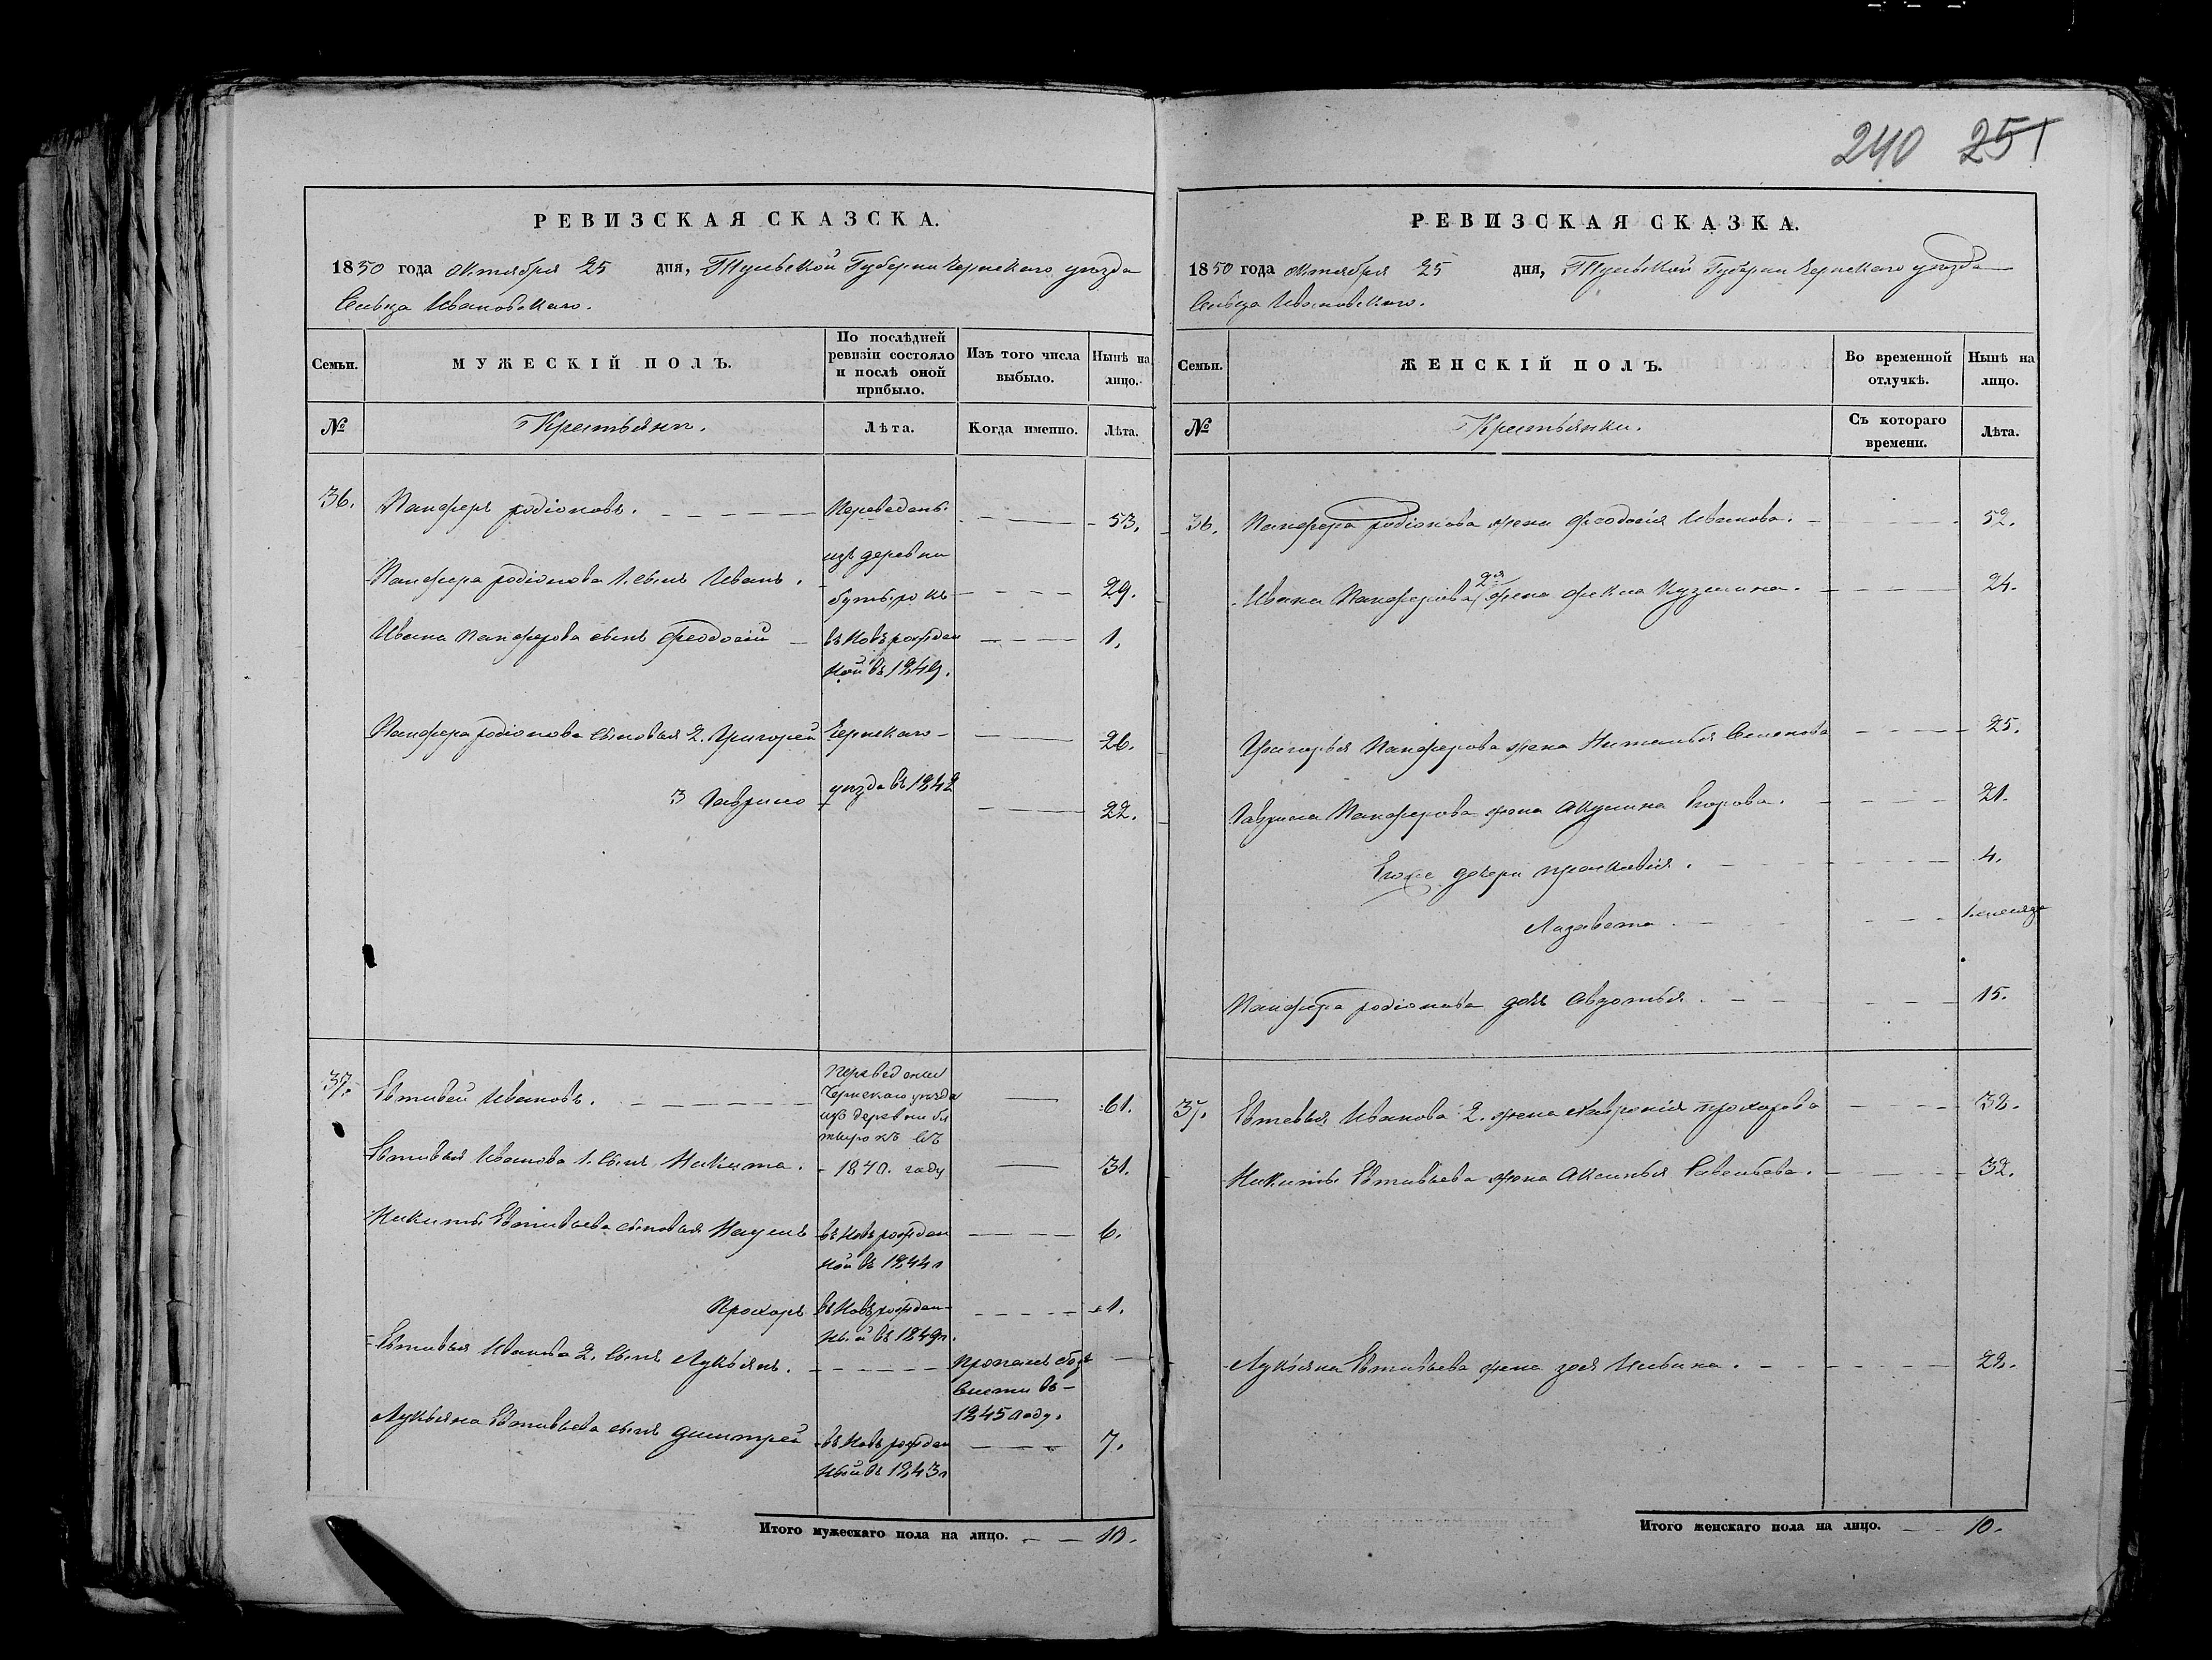 240 251
РЕВИЗСКАЯ СКАЗСКА.
1850 года октября 25 дня, Тульской Губерни Чернскаго уезда
Сельца Ивановскаго.
Семьи.
МУЖЕСКІЙ ПОЛЪ.
По послѣдней ревизіи состояло и послѣ оной прибыло.
Изъ того числа выбыло.
Нынѣ на лицо.
№
Крестьяни.
Лѣта.
Когда именно.
Лѣта.
36. Панферъ родіоновъ. Переведенъ. 53.
изъ деревни
Панфера родіонова 1. сынъ Иванъ. 29.
бутырокъ
Ивана панферова сынъ феодосій въ новърожден 1.
ной въ 1849.
Панфера родіонова сыновья 2. Григорей Чернскаго 26.
уезда въ 1842
3 Гаврило 22.
37. Евтивей Ивановъ. Переведены 61.
Чернскаго уезда
изъ деревни бу
тырокъ въ
Евтивья Иванова 1. сынъ Никита. 1840. году 31.
Никиты Евтивьева сыновья Наумъ въ новърожден 6.
ной въ 1844
Прохоръ въ новърожден 1.
ный въ 1849
Евтивья Иванова 2. сынъ Лукьянъ. пропалъ безъ
вести въ
1845 году.
Лукьяна Евтивьева сынъ дмитрей въ новърожден 7.
ный въ 1843
Итого мужескаго пола на лицо. 10.
РЕВИЗСКАЯ СКАЗКА.
1850 года октября 25 дня, Тульской Губерни Чернскаго уезда
Сельца Ивановскаго.
Семьи.
ЖЕНСКІЙ ПОЛЪ.
Во временной отлучкѣ.
Нынѣ на лицо.
№
Крестьянки.
Съ котораго времени.
Лѣта.
36. Панфера родіонова жена феодосія Иванова. 52.
Ивана Панферова 2я жена фекла Кузмина. 24.
Григорья Панферова жена Наталья Семенова 25.
Гаврила Панферова жена Акулина Егорова. 21.
Егоже дочери прасковія. 4.
Лизавета 1 месяца
Панфера родіонова дочь Авдотья. 15.
37. Евтевья Иванова 2. жена хавронія прохорова 38.
Никиты Евтивьева жена Аксинья Савельева. 32.
Лукьяна Евтивьева жена 28.
Итого женскаго пола на лицо. 10.